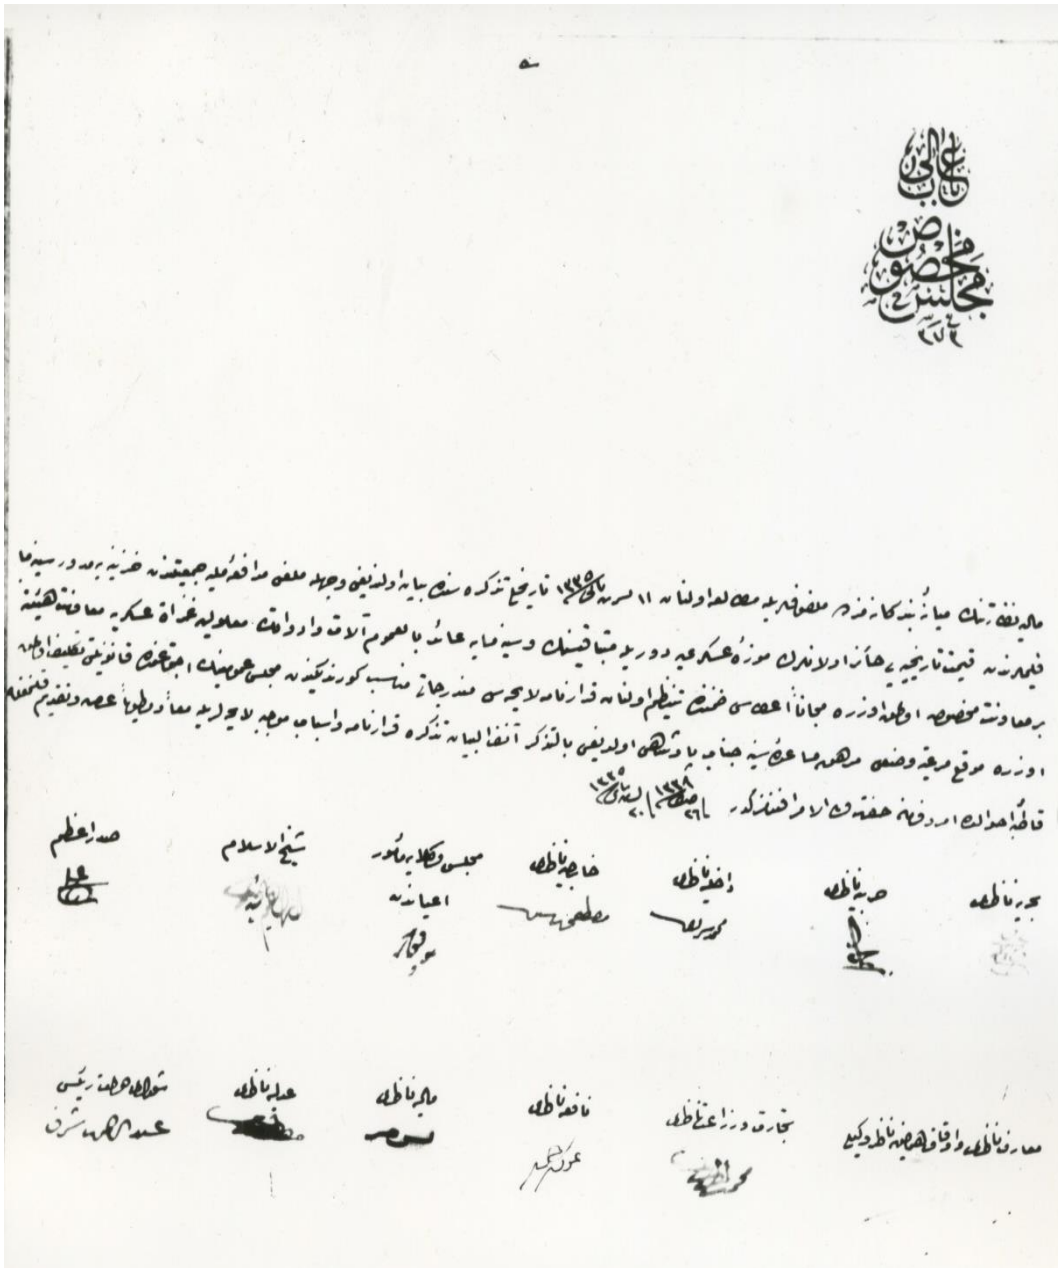 باب عالی
مجلس مخصوص
٢٧٣
مالیه نظارتنك میانهٔ بندکانه‌مزده ملفوفاتیله مطالعه اولنان ١١ تشرین ثانی ١٣٣٥ تاریخلی تذکره‌سنده بیان اولندیغی وجهله ملغی مدافعهٔ ملیه جمعیتندن خزینه‌یه مدور سینما
فیلملرندن قیمت تاریخیه‌یی حائز اولانلرك موزهٔ عسکری‌یه دوریله متباقیسنك و سینمایه عائد بالعموم آلات و ادواتك معلولین غزاة عسکریه معاونت هیئتنه
بر معاونت مخصوصه اولمق اوزره مجاناً اعطاسی ضمننده تنظیم اولنان قرارنامه لایحه‌سی مندرجاتی مناسب کورندیکندن مجلس عمومینك اجتماعنده قانونیتی تکلیف اولنمق
اوزره موقع مرعیته وضعی مرهون مساعدهٔ سنیهٔ جناب پادشاهی اولدیغی بالتذکر آنف البیان تذکره قرارنامه و اسباب موجبه لایحه‌لریله معاً و مطویاً عرض و تقدیم قلنمغله
قاطبهٔ احوالده امر و فرمان حضرت ولی الامر افندمزکدر
٢٦ صفر ١٣٣٨
٢٠ تشرین ثانی ١٣٣٥
صدر اعظم
شیخ الاسلام
مجلس وکلایه مأمور
اعیاندن
خارجیه ناظری
داخلیه ناظری
حربیه ناظری
بحریه ناظری
شورای دولت رئیسی
عبدالرحمن شرف
عدلیه ناظری
مالیه ناظری
نافعه ناظری
تجارت و زراعت ناظری
معارف ناظری و اوقاف همایون ناظر وکیلی